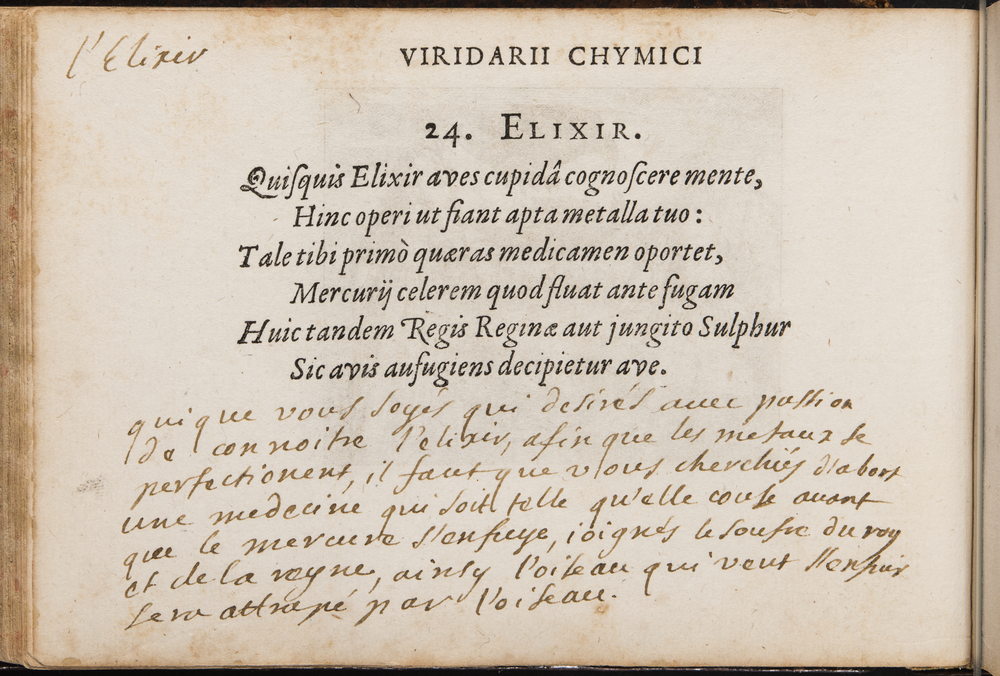 l'Elixir
VIRIDARII CHYMICI
24. ELIXIR.
Quiſquis Elixir aves cupidâ cognoſcere mente,
Hinc operi ut fiant apta metalla tuo :
Tale tibi primò quæras medicamen oportet,
Mercurij celerem quod fluat ante fugam
Huic tandem Regis Reginæ aut jungito Sulphur
Sic avis aufugiens decipietur ave.
qui que vous soyés qui desirés avec passion
de connoitre l'elixir, afin que les metaux se
perfectionent, il faut que vous cherchiés d'abort
une medecine qui soit telle qu'elle coule avant
que le mercure s'enfuye, ioignés le soufre du roy
et de la reyne, ainsy l'oiseau qui veut s'enfuir
sera attrapé par l'oiseau.